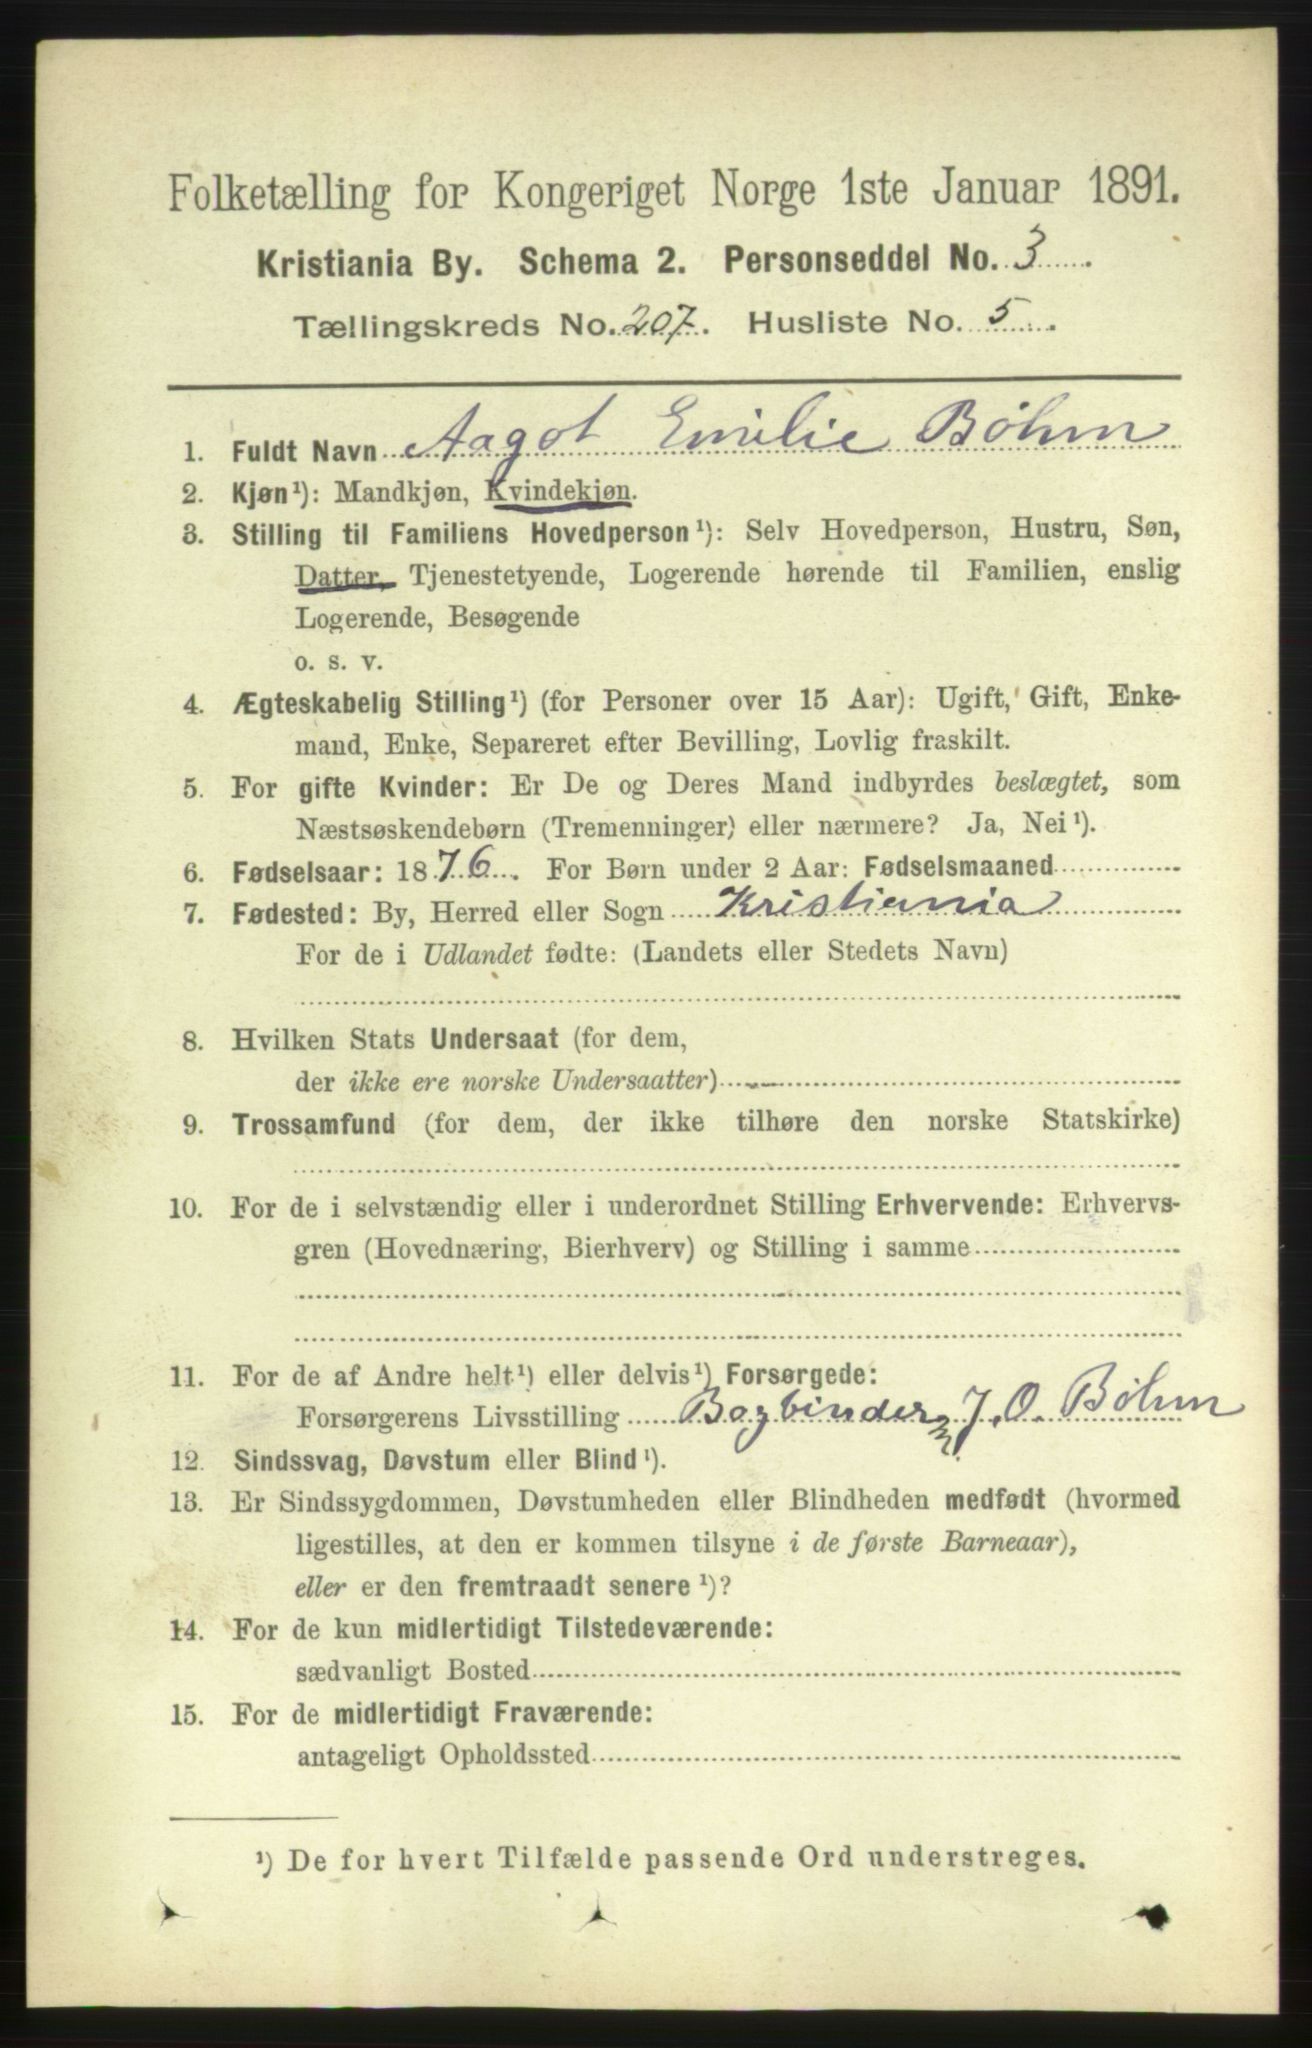 Folketælling for Kongeriget Norge 1ste Januar 1891.
Kristiania By. Schema 2. Personseddel No. 3
Tællingskreds No. 207. Husliste No. 5
1. Fuldt Navn Aagot Emilie Bøhm
2. Kjøn¹): Mandkjøn, Kvindekjøn.
3. Stilling til Familiens Hovedperson¹): Selv Hovedperson, Hustru, Søn,
Datter, Tjenestetyende, Logerende hørende til Familien, enslig
Logerende, Besøgende
o. s. v.
4. Ægteskabelig Stilling¹) (for Personer over 15 Aar): Ugift, Gift, Enke-
mand, Enke, Separeret efter Bevilling, Lovlig fraskilt.
5. For gifte Kvinder: Er De og Deres Mand indbyrdes beslægtet, som
Næstsøskendebørn (Tremenninger) eller nærmere? Ja, Nei¹).
6. Fødselsaar: 1876. For Børn under 2 Aar: Fødselsmaaned
7. Fødested: By, Herred eller Sogn Kristiania
For de i Udlandet fødte: (Landets eller Stedets Navn)
8. Hvilken Stats Undersaat (for dem,
der ikke ere norske Undersaatter)
9. Trossamfund (for dem, der ikke tilhøre den norske Statskirke)
10. For de i selvstændig eller i underordnet Stilling Erhvervende: Erhvervs-
gren (Hovednæring, Bierhverv) og Stilling i samme
11. For de af Andre helt¹) eller delvis¹) Forsørgede:
Forsørgerens Livsstilling Bogbinder J. O. Bøhm
12. Sindssvag, Døvstum eller Blind¹).
13. Er Sindssygdommen, Døvstumheden eller Blindheden medfødt (hvormed
ligestilles, at den er kommen tilsyne i de første Barneaar),
eller er den fremtraadt senere¹)?
14. For de kun midlertidigt Tilstedeværende:
sædvanligt Bosted
15. For de midlertidigt Fraværende:
antageligt Opholdssted
¹) De for hvert Tilfælde passende Ord understreges.